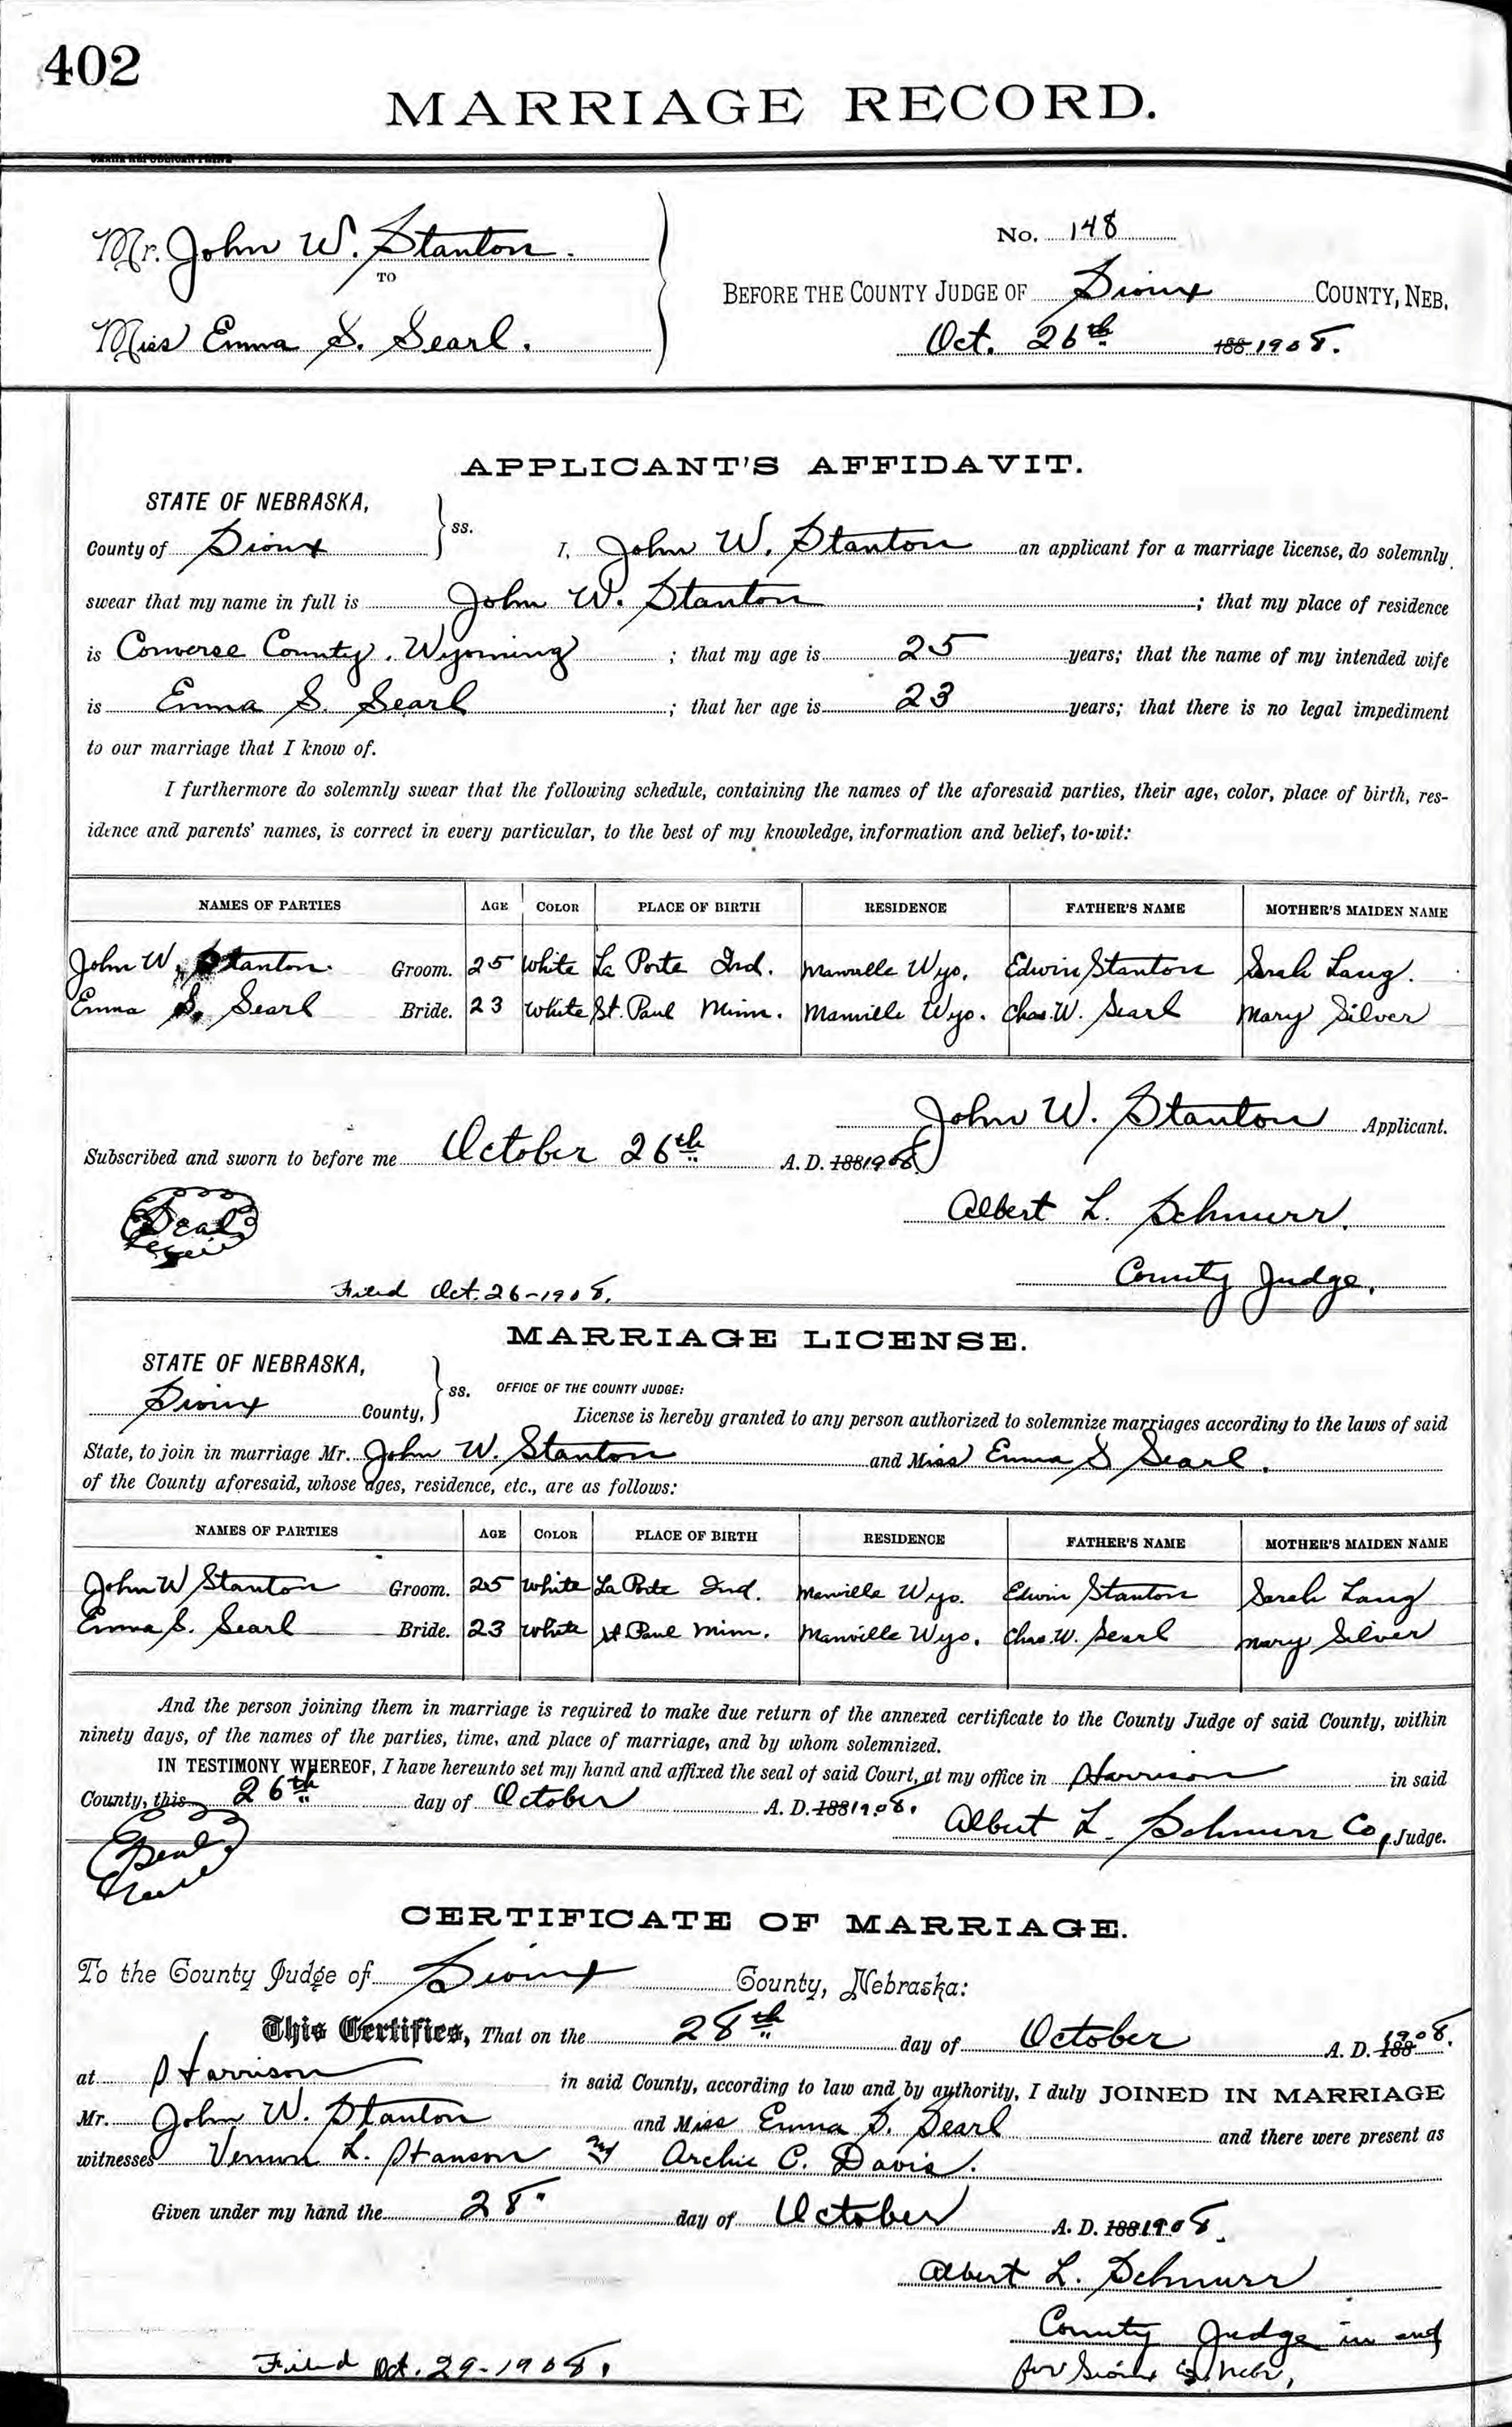 402
MARRIAGE RECORD.
OMAHA REPUBLICAN PRINT
Mr. John W. Stanton.
TO
Miss Emma S. Searl.
No. 148
BEFORE THE COUNTY JUDGE OF Sioux COUNTY, NEB.
Oct. 26th 188 1908.
APPLICANT'S AFFIDAVIT.
STATE OF NEBRASKA,
County of Sioux } ss. I, John W. Stanton an applicant for a marriage license, do solemnly
swear that my name in full is John W. Stanton ; that my place of residence
is Converse County, Wyoming ; that my age is 25 years; that the name of my intended wife
is Emma S. Searl ; that her age is 23 years; that there is no legal impediment
to our marriage that I know of.
I furthermore do solemnly swear that the following schedule, containing the names of the aforesaid parties, their age, color, place of birth, res-
idence and parents' names, is correct in every particular, to the best of my knowledge, information and belief, to-wit:
NAMES OF PARTIES AGE COLOR PLACE OF BIRTH RESIDENCE FATHER'S NAME MOTHER'S MAIDEN NAME
John W. Stanton. Groom. 25 White La Porte Ind. Manville Wyo. Edwin Stanton Sarah Lang.
Emma S. Searl Bride. 23 White St. Paul Minn. Manville Wyo. Chas. W. Searl Mary Silver
John W. Stanton Applicant.
Subscribed and sworn to before me October 26th A. D. 188 1908.
Albert L. Schnurr.
Seal
County Judge.
Filed Oct. 26-1908.
MARRIAGE LICENSE.
STATE OF NEBRASKA,
Sioux County, } ss. OFFICE OF THE COUNTY JUDGE:
License is hereby granted to any person authorized to solemnize marriages according to the laws of said
State, to join in marriage Mr. John W. Stanton and Miss Emma S Searl.
of the County aforesaid, whose ages, residence, etc., are as follows:
NAMES OF PARTIES AGE COLOR PLACE OF BIRTH RESIDENCE FATHER'S NAME MOTHER'S MAIDEN NAME
John W Stanton Groom. 25 White La Porte Ind. Manville Wyo. Edwin Stanton Sarah Lang
Emma S. Searl Bride. 23 White St Paul Minn. Manville Wyo. Chas. W. Searl Mary Silver
And the person joining them in marriage is required to make due return of the annexed certificate to the County Judge of said County, within
ninety days, of the names of the parties, time, and place of marriage, and by whom solemnized.
IN TESTIMONY WHEREOF, I have hereunto set my hand and affixed the seal of said Court, at my office in Harrison in said
County, this 26th day of October A. D. 188 1908.
Albert L. Schnurr Co, Judge.
Seal
CERTIFICATE OF MARRIAGE.
To the County Judge of Sioux County, Nebraska:
This Certifies, That on the 28th day of October A. D. 188 1908.
at Harrison in said County, according to law and by authority, I duly JOINED IN MARRIAGE
Mr. John W. Stanton and Miss Emma S. Searl and there were present as
witnesses Vernon L. Hanson and Archie C. Davis.
Given under my hand the 28" day of October A. D. 188 1908.
Albert L. Schnurr
County Judge in and
Filed Oct. 29-1908.
for Sioux Co. Nebr.